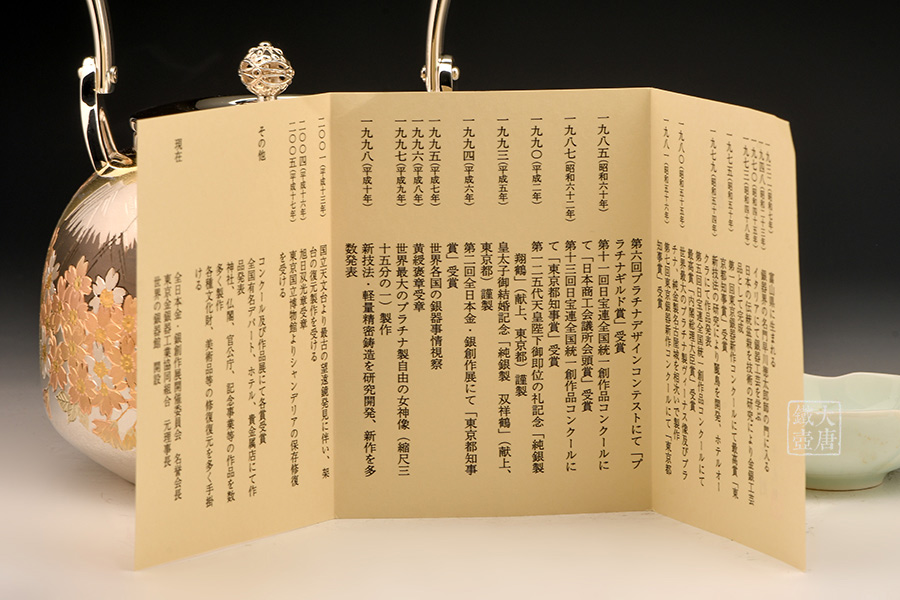 一九三二(昭和七年)
富山県に生まれる
一九四八(昭和二十三年)
一九七〇(昭和四十五年)
一九七三(昭和四十八年)
一九七五(昭和五十年)
京都知事賞」受賞
一九七九(昭和五十四年)
クラにて作品発表
一九八〇(昭和五十五年)
最高賞「内閣総理大臣賞」受賞
一九八一(昭和五十六年)
知事賞」受賞
一九八五(昭和六十年)
第六回プラチナデザインコンテストにて「プ
ラチナギルド賞」受賞
第十一回日宝連全国統一創作品コンクールに
て「日本商工会議所会頭賞」受賞
一九八七(昭和六十二年)
第十三回日宝連全国統一創作品コンクールに
て「東京都知事賞」受賞
一九九〇(平成二年)
第一二五代天皇陛下御即位の礼記念「純銀製
翔鶴」(献上、東京都)謹製
一九九三(平成五年)
皇太子御結婚記念「純銀製 双祥鶴」(献上、
東京都)謹製
一九九四(平成六年)
第二回全日本金・銀創作展にて「東京都知事
賞」受賞
一九九五(平成七年)
世界各国の銀器事情視察
一九九六(平成八年)
黄綬褒章受章
一九九七(平成九年)
世界最大のプラチナ製自由の女神像(縮尺三
十五分の一)製作
一九九八(平成十年)
新技法・軽量精密鋳造を研究開発、新作を多
数発表
二〇〇一(平成十三年)
国立天文台より最古の望遠鏡発見に伴い、架
台の復元製作を受ける
二〇〇四(平成十六年)
旭日双光章受章
二〇〇五(平成十七年)
東京国立博物館よりシャンデリアの保存修復
を受ける
その他
コンクール及び作品展にて各賞受賞
全国有名デパート、ホテル、貴金属店にて作
品発表
神社、仏閣、官公庁、記念事業等の作品を数
多く製作
各種文化財、美術品等の修復復元を多く手掛
ける
現在
全日本金・銀創作展開催委員会 名誉会長
東京金銀器工業協同組合 元理事長
世界の銀器館 開設
大唐
鐵壺